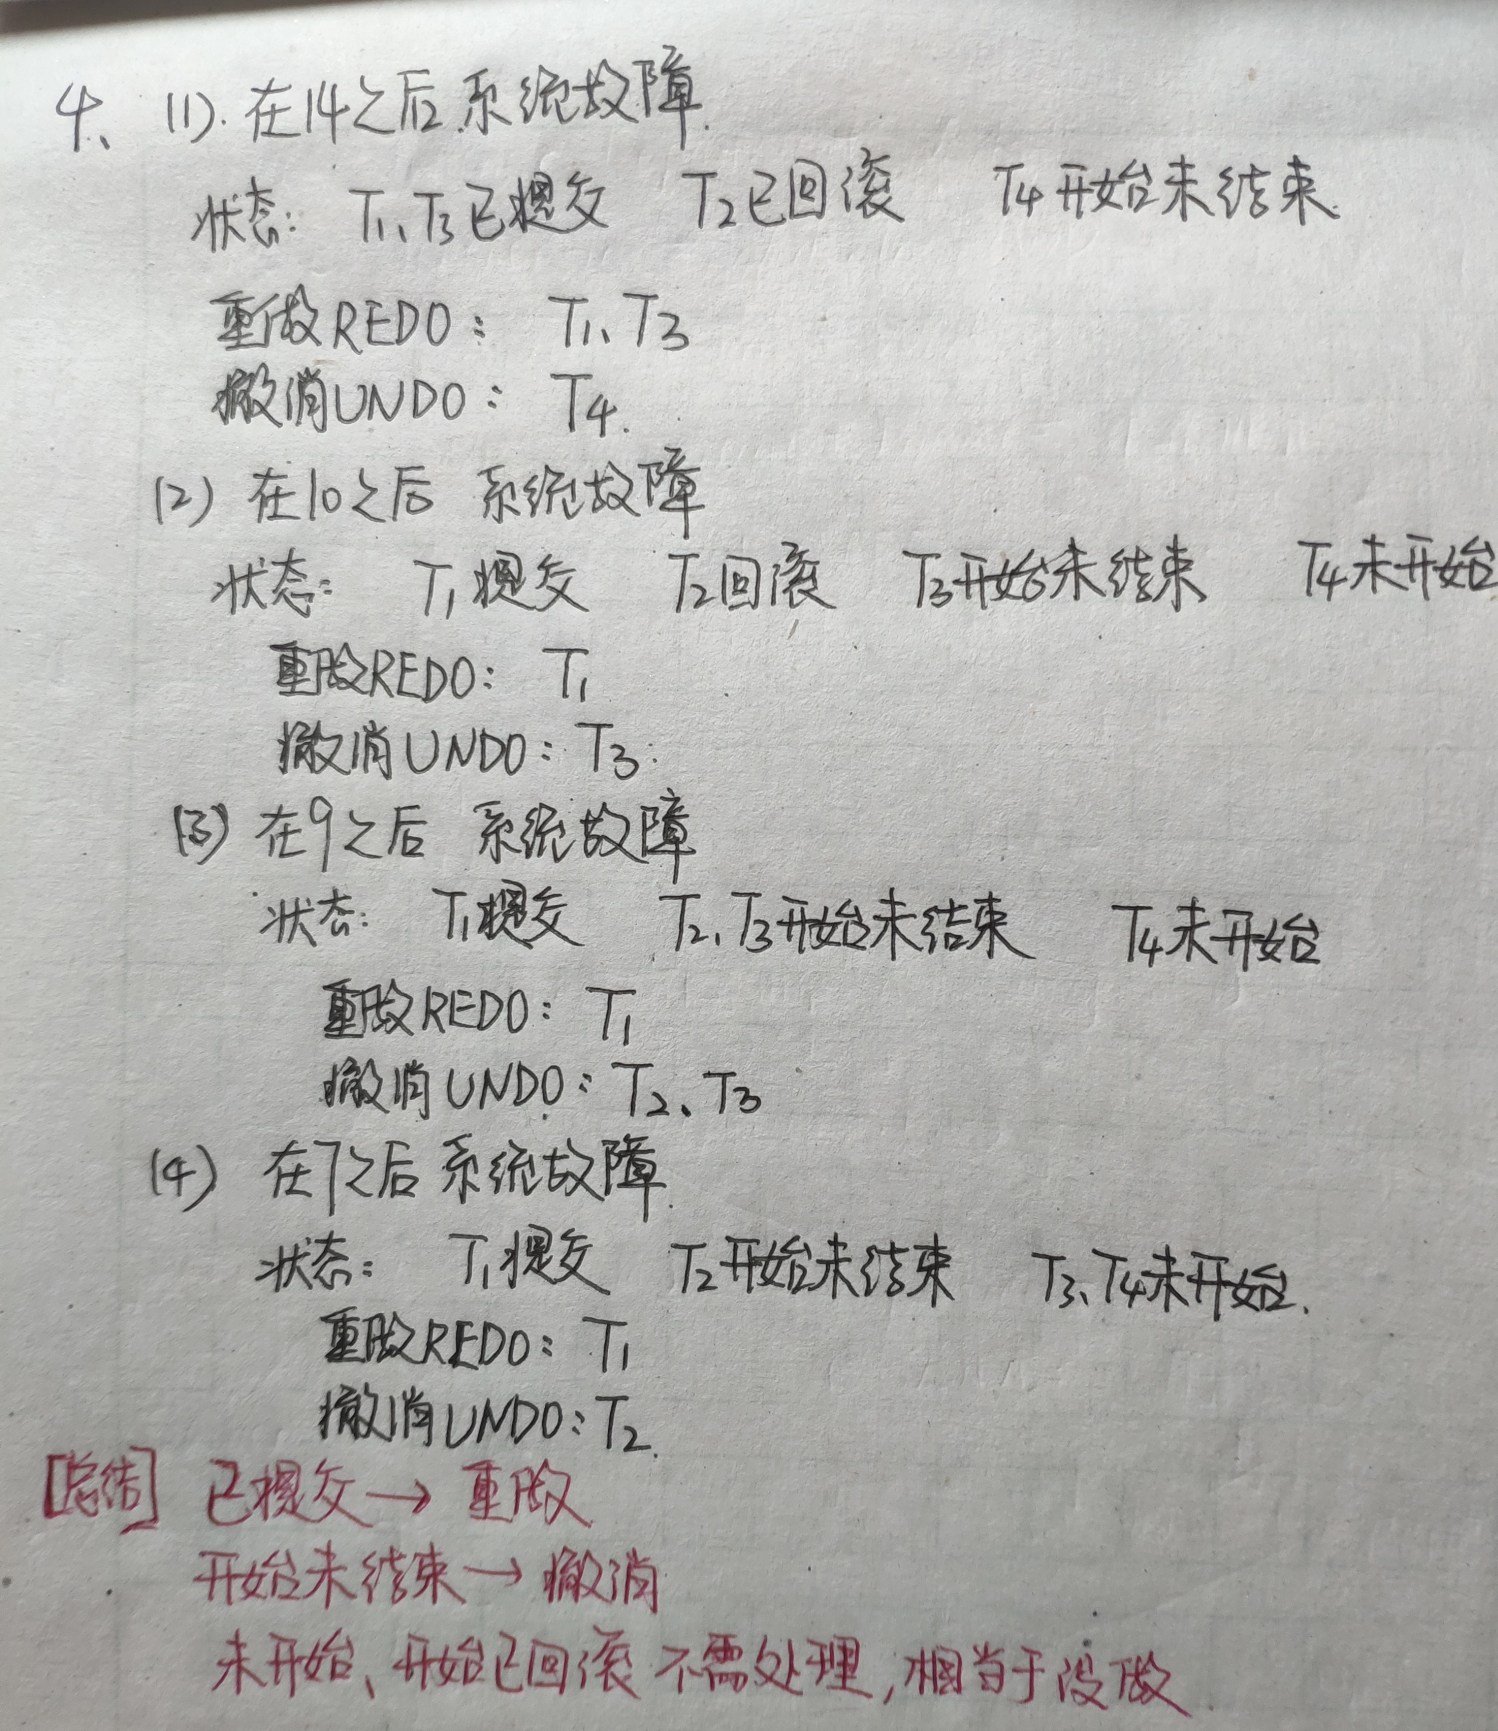 4、(1).在14之后系统故障.
状态: T1、T3已提交 T2已回滚 T4开始未结束.
重做REDO: T1、T3
撤消UNDO: T4.
(2) 在10之后 系统故障
状态: T1提交 T2回滚 T3开始未结束 T4未开始
重做REDO: T1
撤消UNDO: T3.
(3) 在9之后 系统故障
状态: T1提交 T2、T3开始未结束 T4未开始
重做REDO: T1
撤消UNDO: T2、T3
(4) 在7之后 系统故障.
状态: T1提交 T2开始未结束 T3、T4未开始.
重做REDO: T1
撤消UNDO: T2.
[总结] 已提交→重做
开始未结束→撤消
未开始、开始已回滚 不需处理,相当于没做